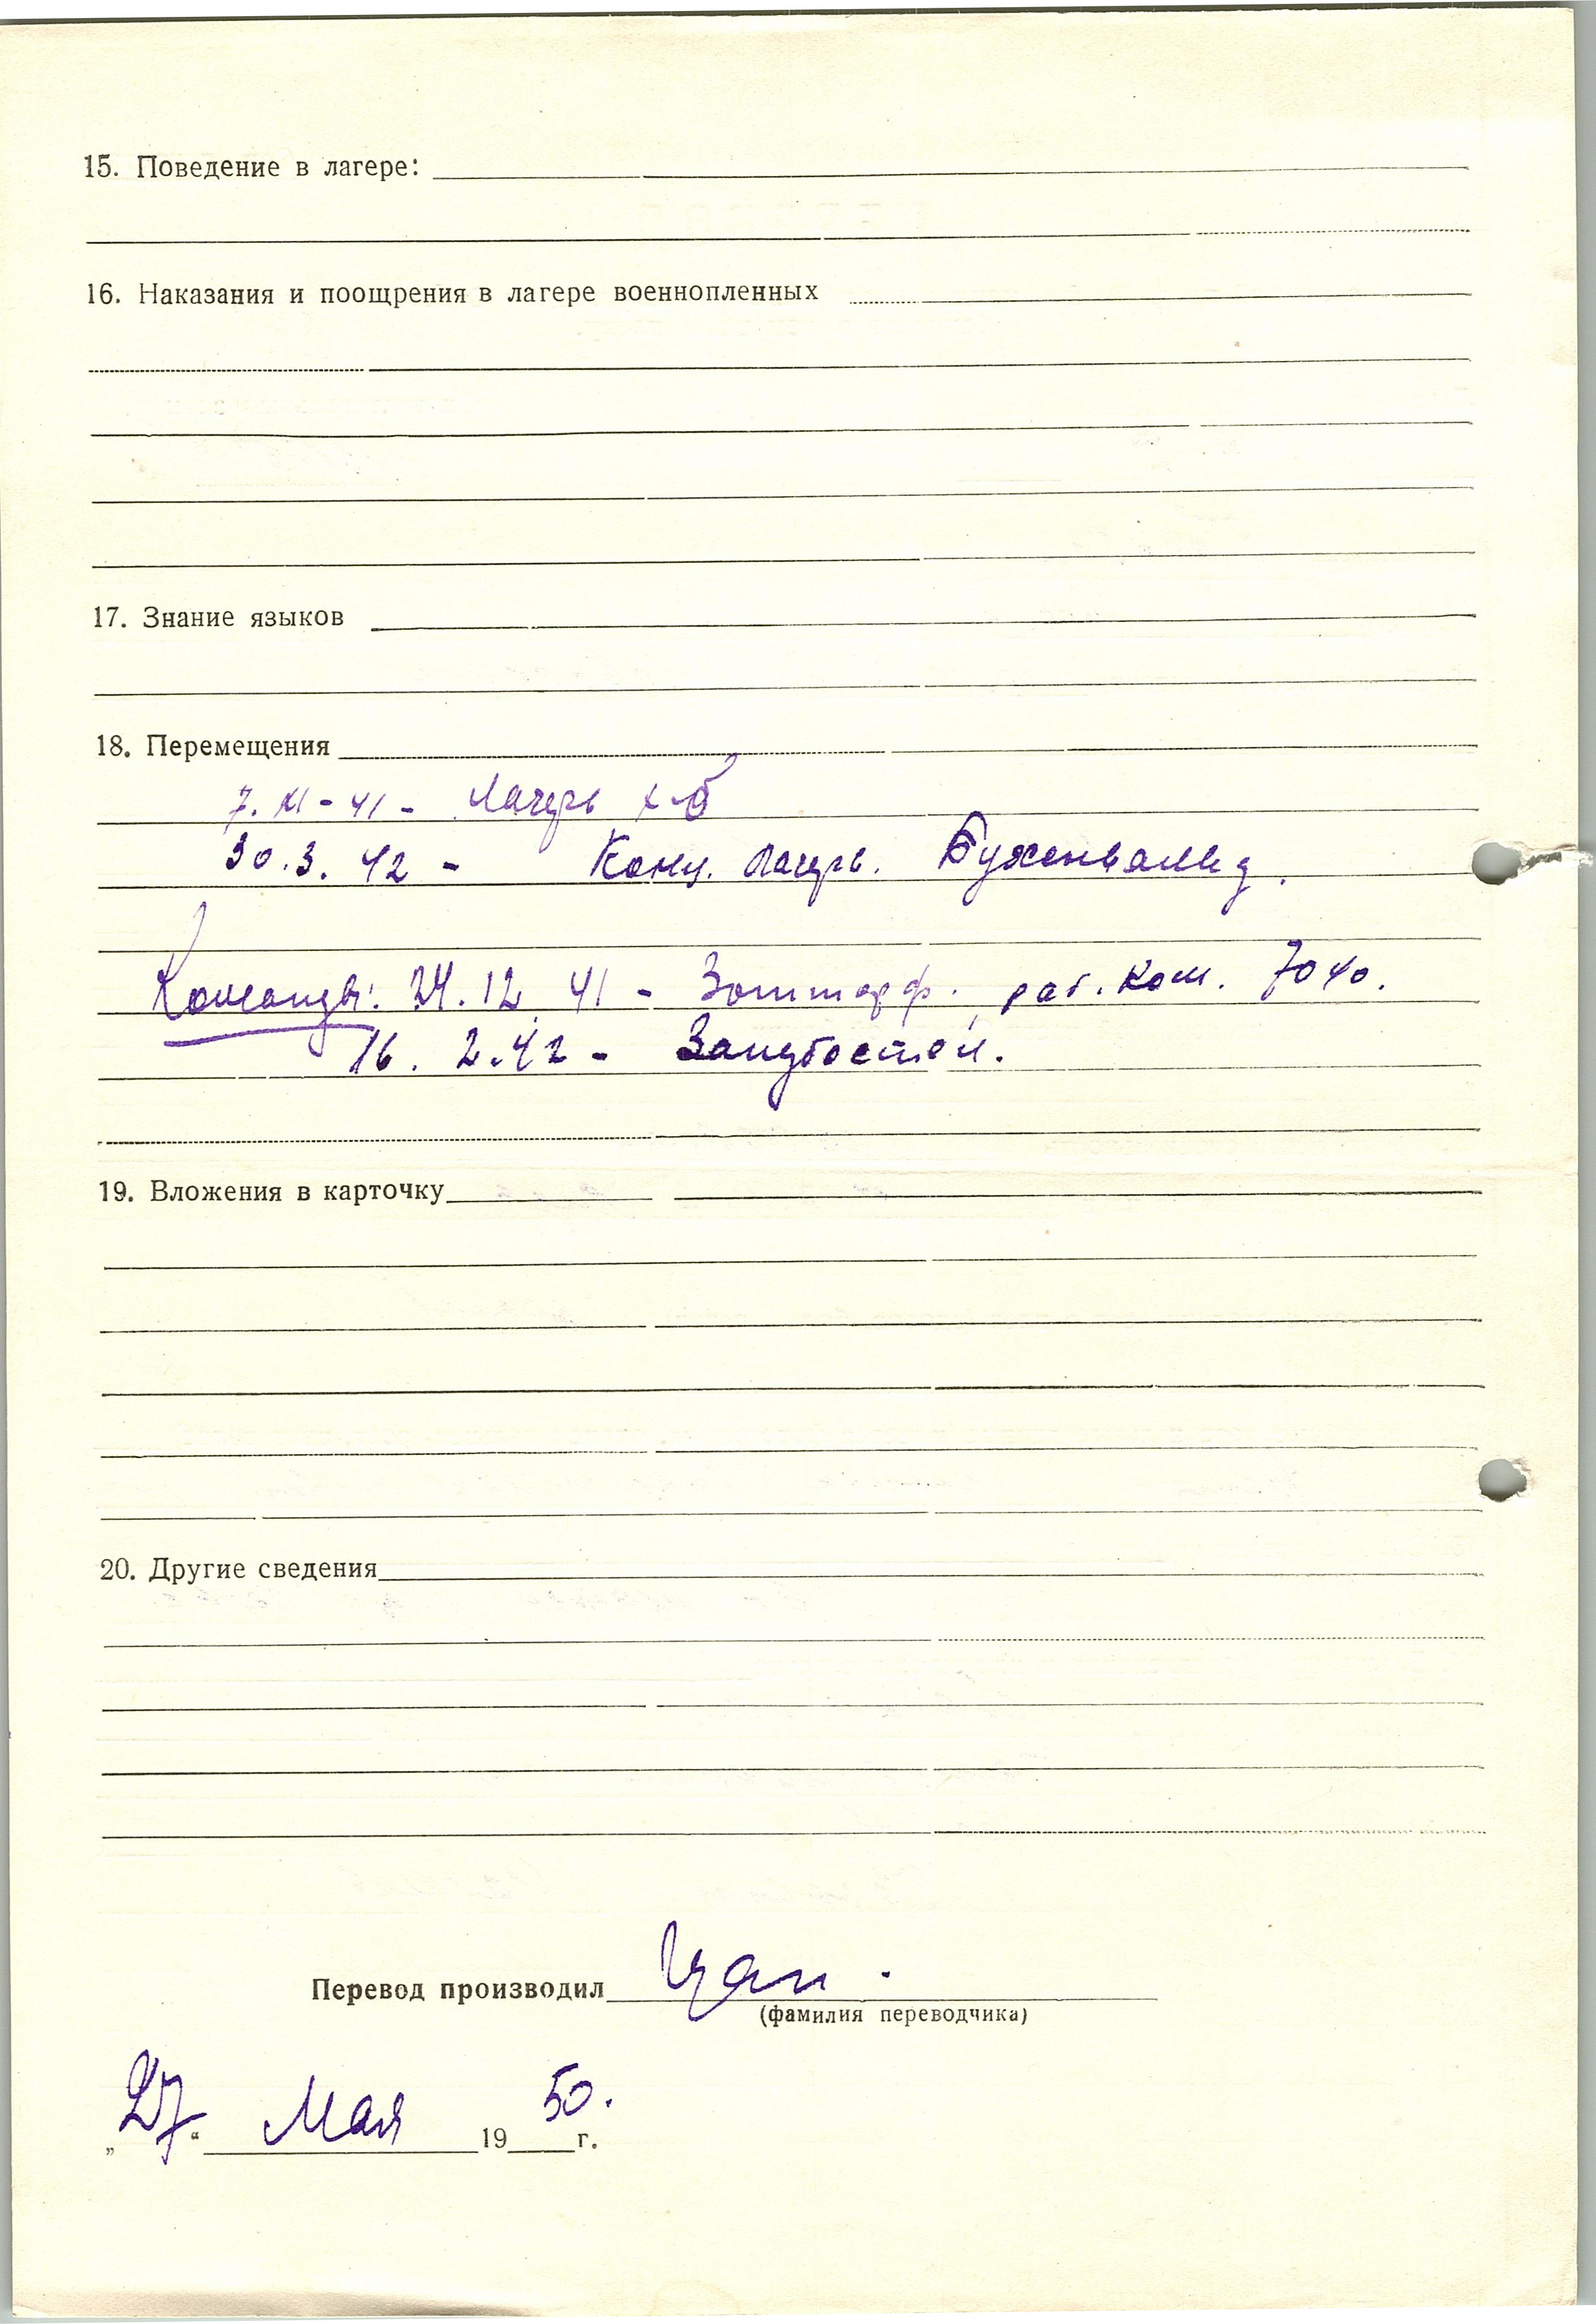 15. Поведение в лагере:
16. Наказания и поощрения в лагере военнопленных
17. Знание языков
18. Перемещения
7. XI - 41 - Лагерь X-б
30.3. 42 - Конц. лагерь. Бухенвальд.
Команды: 24.12. 41 - раб. ком. 7040.
16. 2.42 - Зандбостел.
19. Вложения в карточку
20. Другие сведения
Перевод производил
(фамилия переводчика)
„27“ Мая 1950. г.